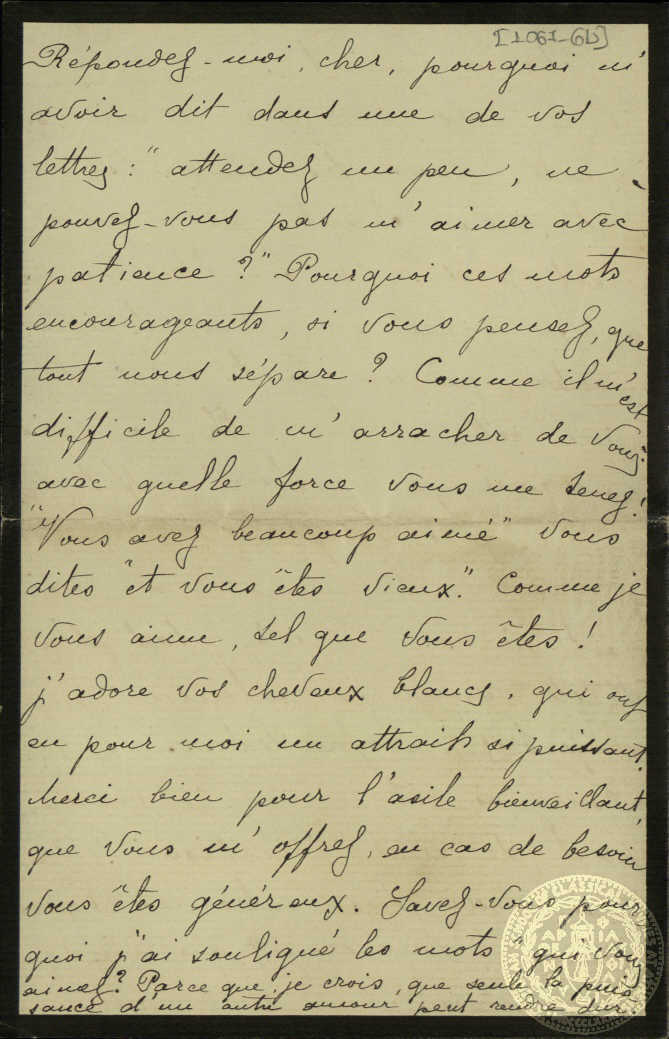 [1061-61]
Répondez-moi, cher, pourquoi m'
avoir dit dans une de vos
lettres : "attendez un peu, ne
pouvez-vous pas m'aimer avec
patience ?" Pourquoi ces mots
encourageants, si vous pensez, que
tout nous sépare ? Comme il m'est
difficile de m'arracher de vous,
avec quelle force vous me tenez !
"Vous avez beaucoup aimé" vous
dites "et vous êtes vieux". Comme je
vous aime, tel que vous êtes !
j'adore vos cheveux blancs, qui ont
eu pour moi un attrait si puissant.
Merci bien pour l'asile bienveillant,
que vous m'offrez, en cas de besoin
vous êtes généreux. Savez-vous, pour
quoi j'ai souligné les mots "qui vous
aimez ? Parce que, je crois, que seule la puis
sance d'un autre amour peut rendre dur